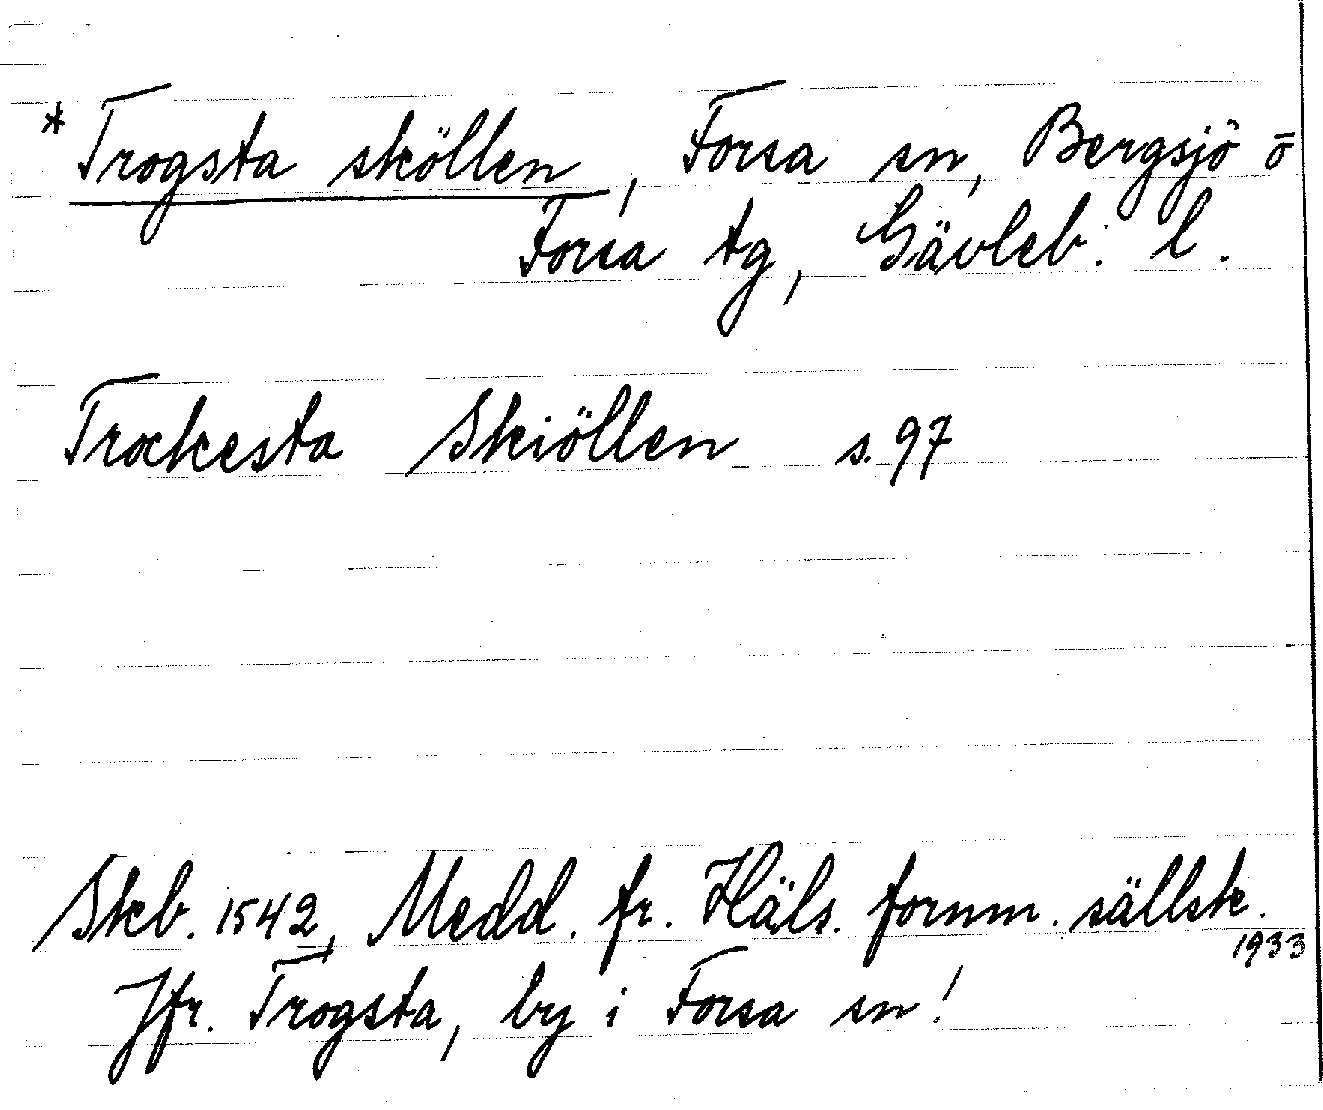 *Trogsta sköllen, Forsa sn, Bergsjö o
Forsa tg, Gävleb. l.
Trockesta Skiöllen s. 97
Skb. 1542, Medd. fr. Häls. fornm. sällsk.
1933
Jfr. Trogsta, by i Forsa sn!